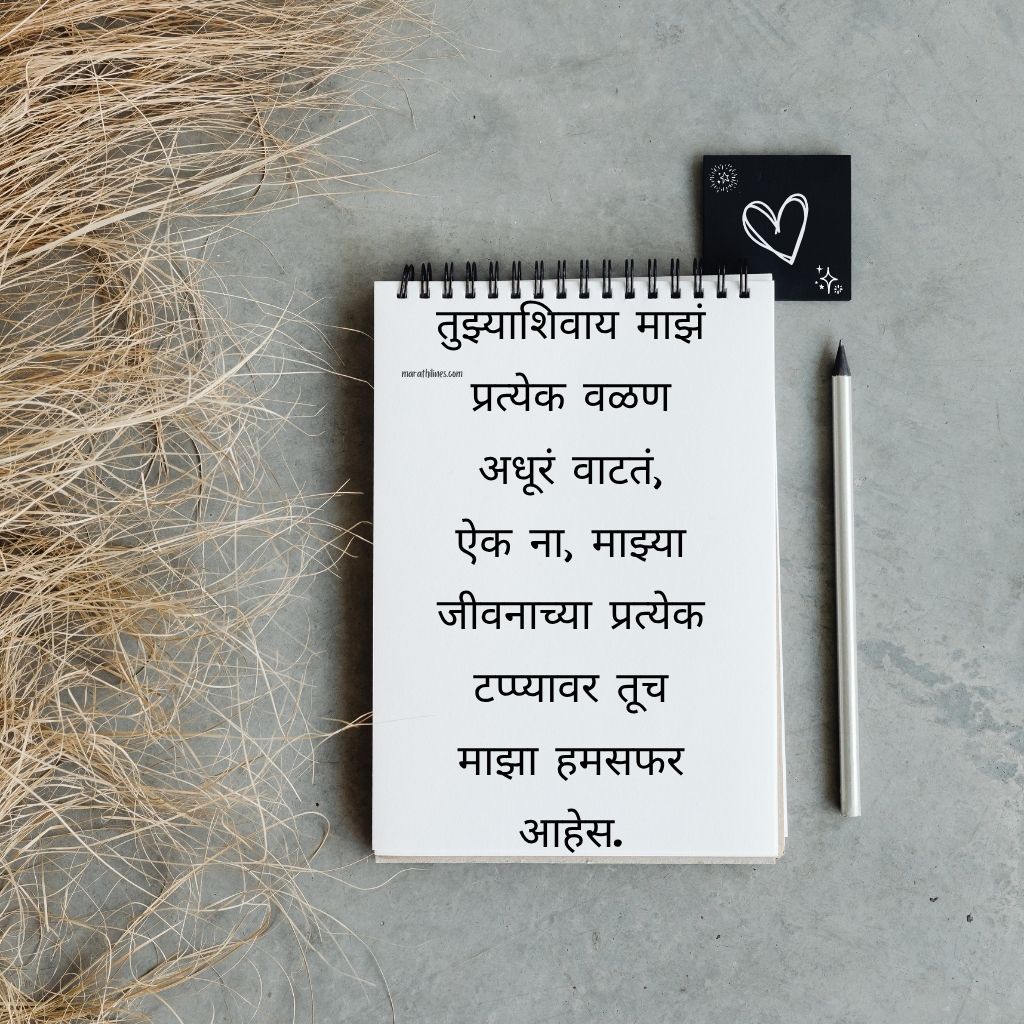 तुझ्याशिवाय माझं
marathilines.com
प्रत्येक वळण
अधूरं वाटतं,
ऐक ना, माझ्या
जीवनाच्या प्रत्येक
टप्प्यावर तूच
माझा हमसफर
आहेस.